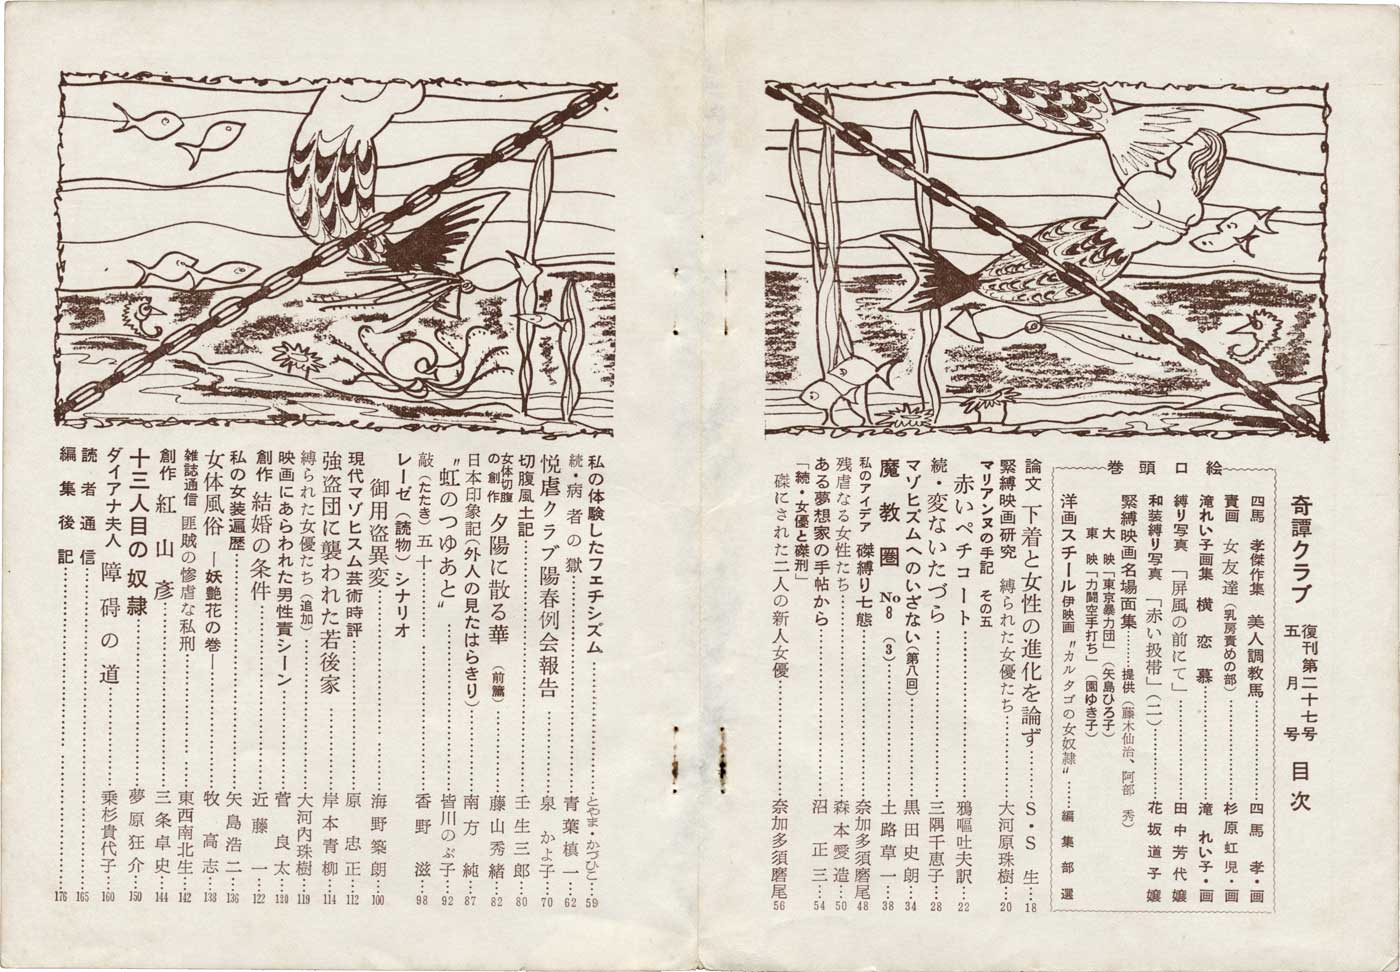 奇譚クラブ 復刊第二十七号 五月号 目次
巻頭口絵
四馬孝傑作集 美人調教馬……四馬孝・画
責画 女友達(乳房責めの部)……杉原虹児・画
滝れい子画集 横恋慕……滝れい子・画
縛り写真 「屏風の前にて」……田中芳代嬢
和装縛り写真 「赤い扱帯」(二)……花坂道子嬢
緊縛映画名場面集……提供(藤木仙治、阿部秀)
大映「東京暴力団」(矢島ひろ子)
東映「力闘空手打ち」(園ゆき子)
洋画スチール 伊映画 〝カルタゴの女奴隷〟……編集部選
論文 下着と女性の進化を論ず……S・S生…18
緊縛映画研究 縛られた女優たち……大河原珠樹…20
マリアンヌの手記 その五
赤いペチコート……鴉嘔吐夫訳…22
続・変ないたづら……三隅千恵子…28
マゾヒズムへのいざない(第八回)……黒田史朗…34
魔教圏 No8(3)……土路草一…38
私のアイデア 磔縛り七態……奈加多須磨尾…48
残虐なる女性たち……森本愛造…50
ある夢想家の手帖から……沼正三…54
「続・女優と磔刑」
磔にされた二人の新人女優……奈加多須磨尾…56
私の体験したフェチシズム……とやま・かづひこ…59
続・病者の獄……青葉槙一…62
悦虐クラブ陽春例会報告……泉かよ子…70
切腹風土記……壬生三郎…80
女体切腹の創作 夕陽に散る華(前篇)……藤山秀緒…82
日本印象記(外人の見たはらきり)……南方純…87
〝虹のつゆあと〟……皆川のぶ子…92
敲(たたき)五十……香野滋…98
レーゼ(読物)シナリオ
御用盗異変……海野築朗…100
現代マゾヒスム芸術時評……原忠正…112
強盗団に襲われた若後家……岸本青柳…114
縛られた女優たち(追加)……大河内珠樹…119
映画にあらわれた男性責シーン……菅良太…120
創作 結婚の条件……近藤一…122
私の女装遍歴……矢島浩二…136
女体風俗 ―妖艶花の巻―……牧高志…138
雑誌通信 匪賊の惨虐な私刑……東西南北生…142
創作 紅山彦……三条卓史…144
十三人目の奴隷……夢原狂介…150
ダイアナ夫人 障碍の道……乗杉貴代子…160
読者通信……165
編集後記……176